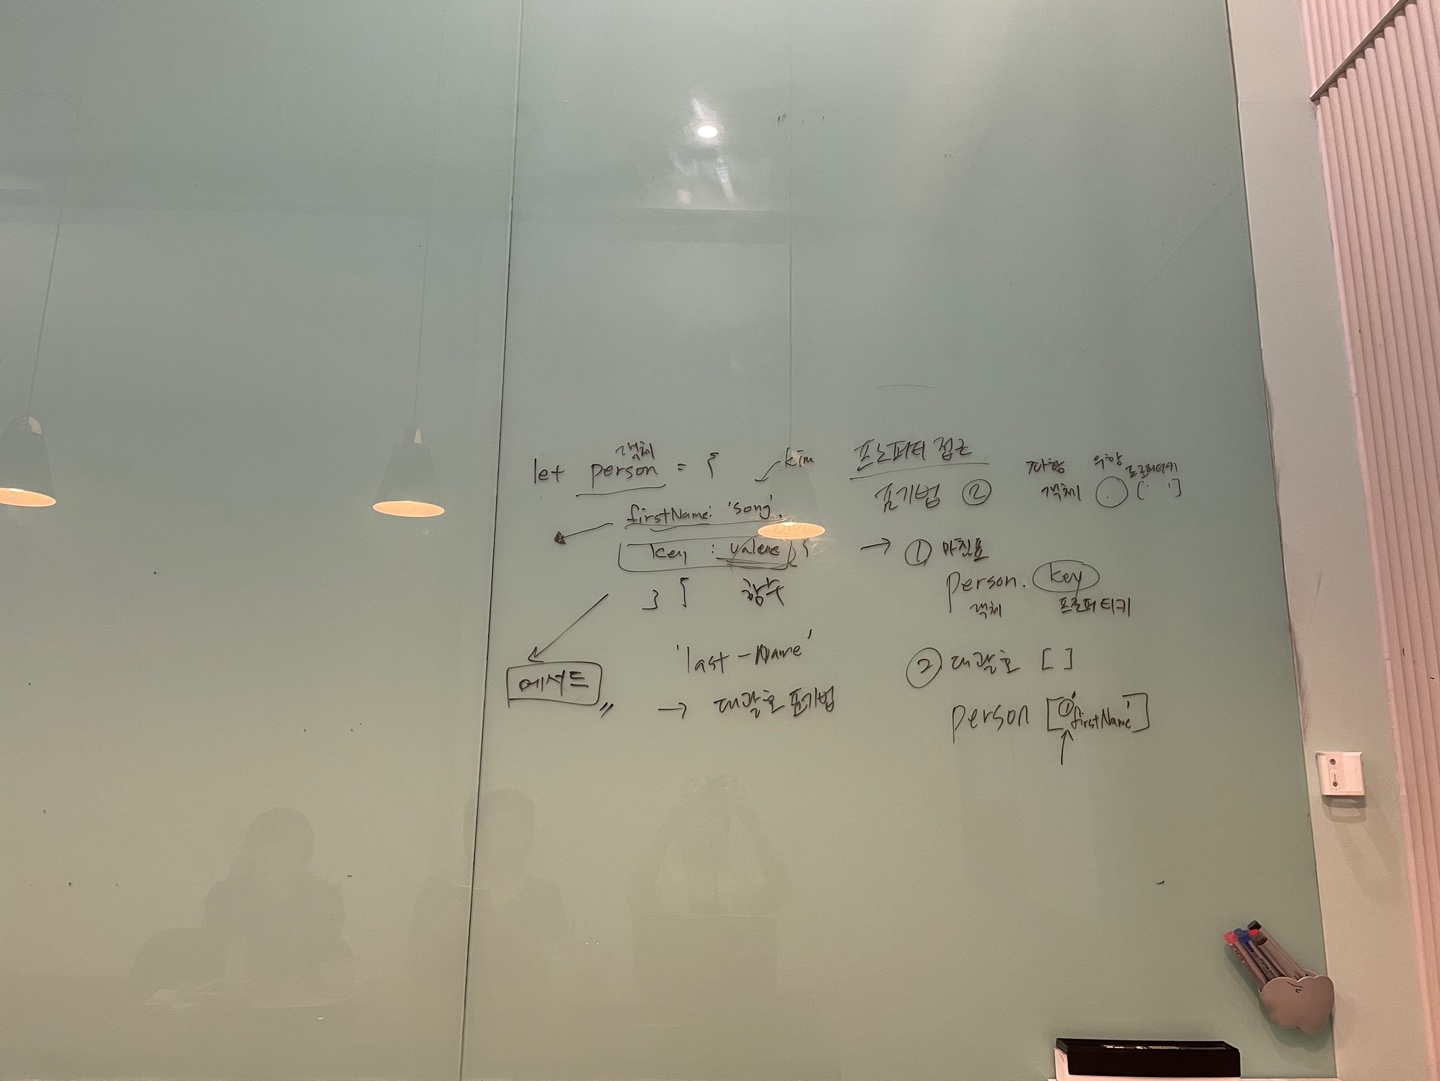 객체
let person = {
kim
firstName: 'song',
key : value
} { 함수
메서드
'last-Name'
→ 대괄호 표기법
프로퍼티 접근
표기법 ②
좌항 우항 프로퍼티키
객체 . [' ']
→ ① 마침표
person. key
객체 프로퍼티키
② 대괄호 [ ]
person ['firstName']